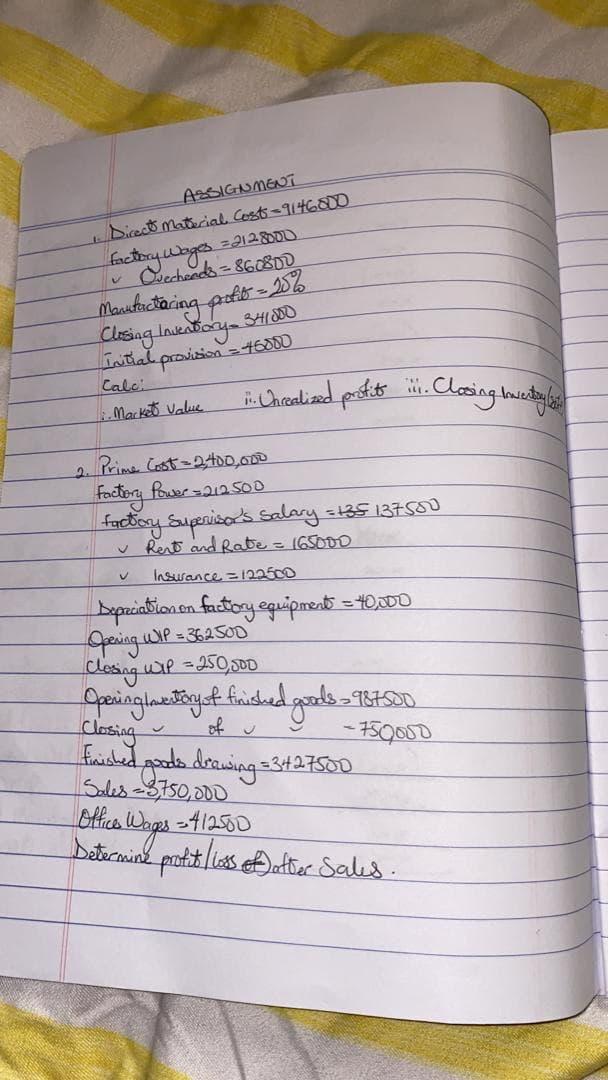 ASSIGNMENT
1. Direct Material Cost = 9146000
Factory Wages = 2128000
✓ Overheads = 860800
Manufactaring profit = 20%
Closing Inventory = 341000
Initial provision = 46000
Calc:
i. Market Value ii. Unrealized profit iii. Closing Inventory
2. Prime Cost = 2,400,000
Factory Power = 212500
Factory Supervisor's Salary = 137500
✓ Rent and Rate = 165000
✓ Insurance = 122500
Depreciation on factory equipment = 40,000
Opening WIP = 362500
Closing WIP = 250,000
Opening Inventory of finished goods = 987500
Closing ✓ of ✓ ✓ = 750,000
Finished goods drawing = 3427500
Sales = 3,750,000
Office Wages = 412500
Determine profit/loss after Sales.